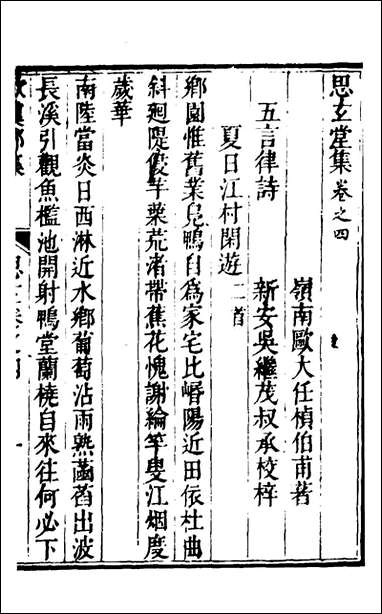 思玄堂集卷之四
嶺南歐大任楨伯甫著
新安吳繼茂叔承校梓
五言律詩
夏日江村閑遊二首
鄉園惟舊業兒鴨自爲家宅比嵋陽近田依杜曲
斜廻隄侵芋葉荒渚帶蕉花愧謝綸竿叟江烟度
歲華
南陸當炎日西淋近水鄉葡萄沾雨熟菡萏出波
長溪引觀魚檻池開射鴨堂蘭橈自來往何必下